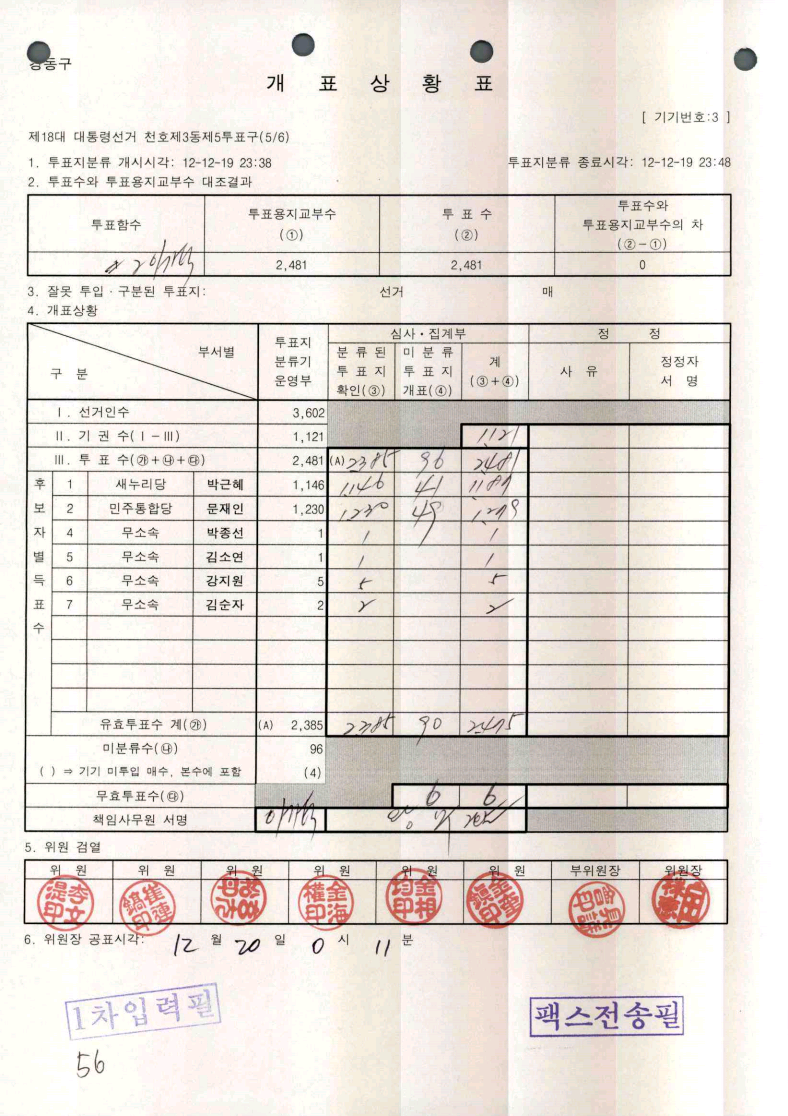 강동구
개 표 상 황 표
[ 기기번호:3 ]
제18대 대통령선거 천호제3동제5투표구(5/6)
1. 투표지분류 개시시각: 12-12-19 23:38 투표지분류 종료시각: 12-12-19 23:48
2. 투표수와 투표용지교부수 대조결과
투표함수 투표용지교부수 (①) 투 표 수 (②) 투표수와 투표용지교부수의 차 (②-①)
2,481 2,481 0
3. 잘못 투입·구분된 투표지: 선거 매
4. 개표상황
구 분 부서별 투표지 분류기 운영부 심사·집계부 정 정
분 류 된 투 표 지 확인(③) 미 분 류 투 표 지 개표(④) 계 (③+④) 사 유 정정자 서 명
Ⅰ. 선거인수 3,602
Ⅱ. 기 권 수(Ⅰ-Ⅲ) 1,121 1121
Ⅲ. 투 표 수(㉮+㉯+㉰) 2,481 (A) 2385 96 2481
후보자별득표수
1 새누리당 박근혜 1,146 1146 41 1187
2 민주통합당 문재인 1,230 1230 49 1279
4 무소속 박종선 1 1 1
5 무소속 김소연 1 1 1
6 무소속 강지원 5 5 5
7 무소속 김순자 2 2 2
유효투표수 계(㉮) (A) 2,385 2385 90 2475
미분류수(㉯) 96
( ) ⇒ 기기 미투입 매수, 본수에 포함 (4)
무효투표수(㉰) 6 6
책임사무원 서명
5. 위원 검열
위 원 위 원 위 원 위 원 위 원 위 원 부위원장 위원장
6. 위원장 공표시각: 12 월 20 일 0 시 11 분
1차입력필
팩스전송필
56